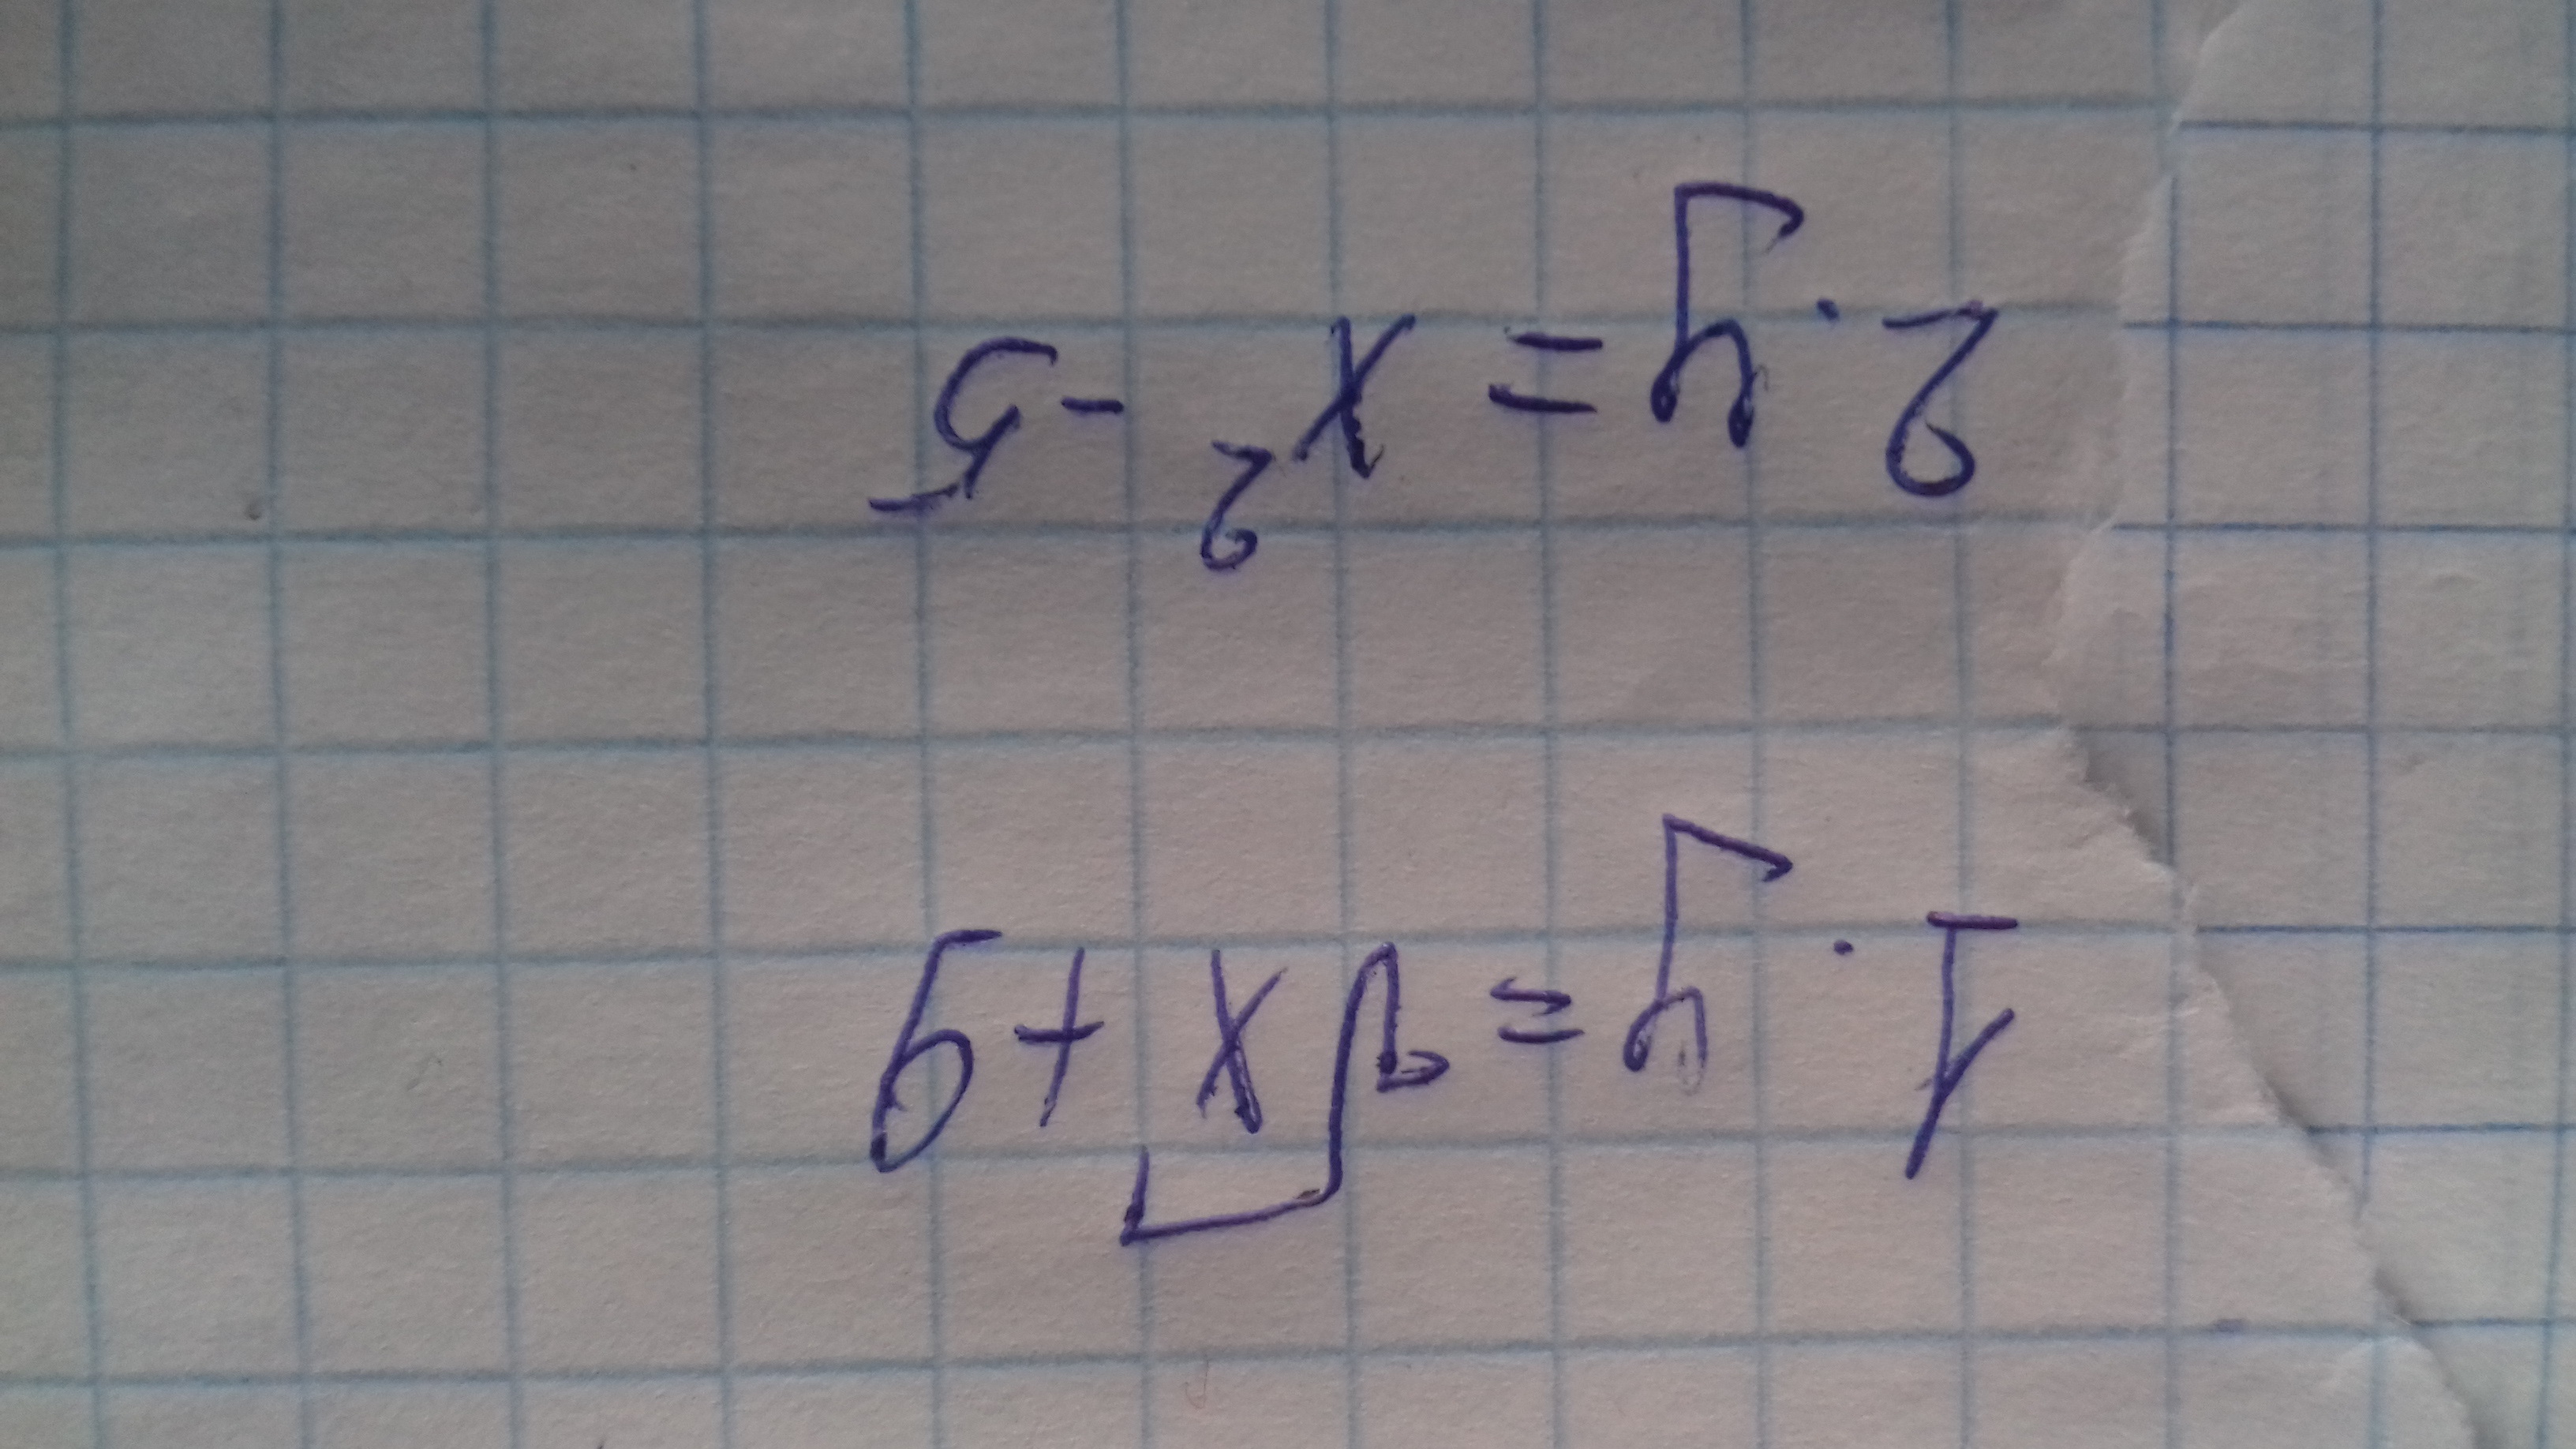 1. y = √x + 9
2. y = x² - 5